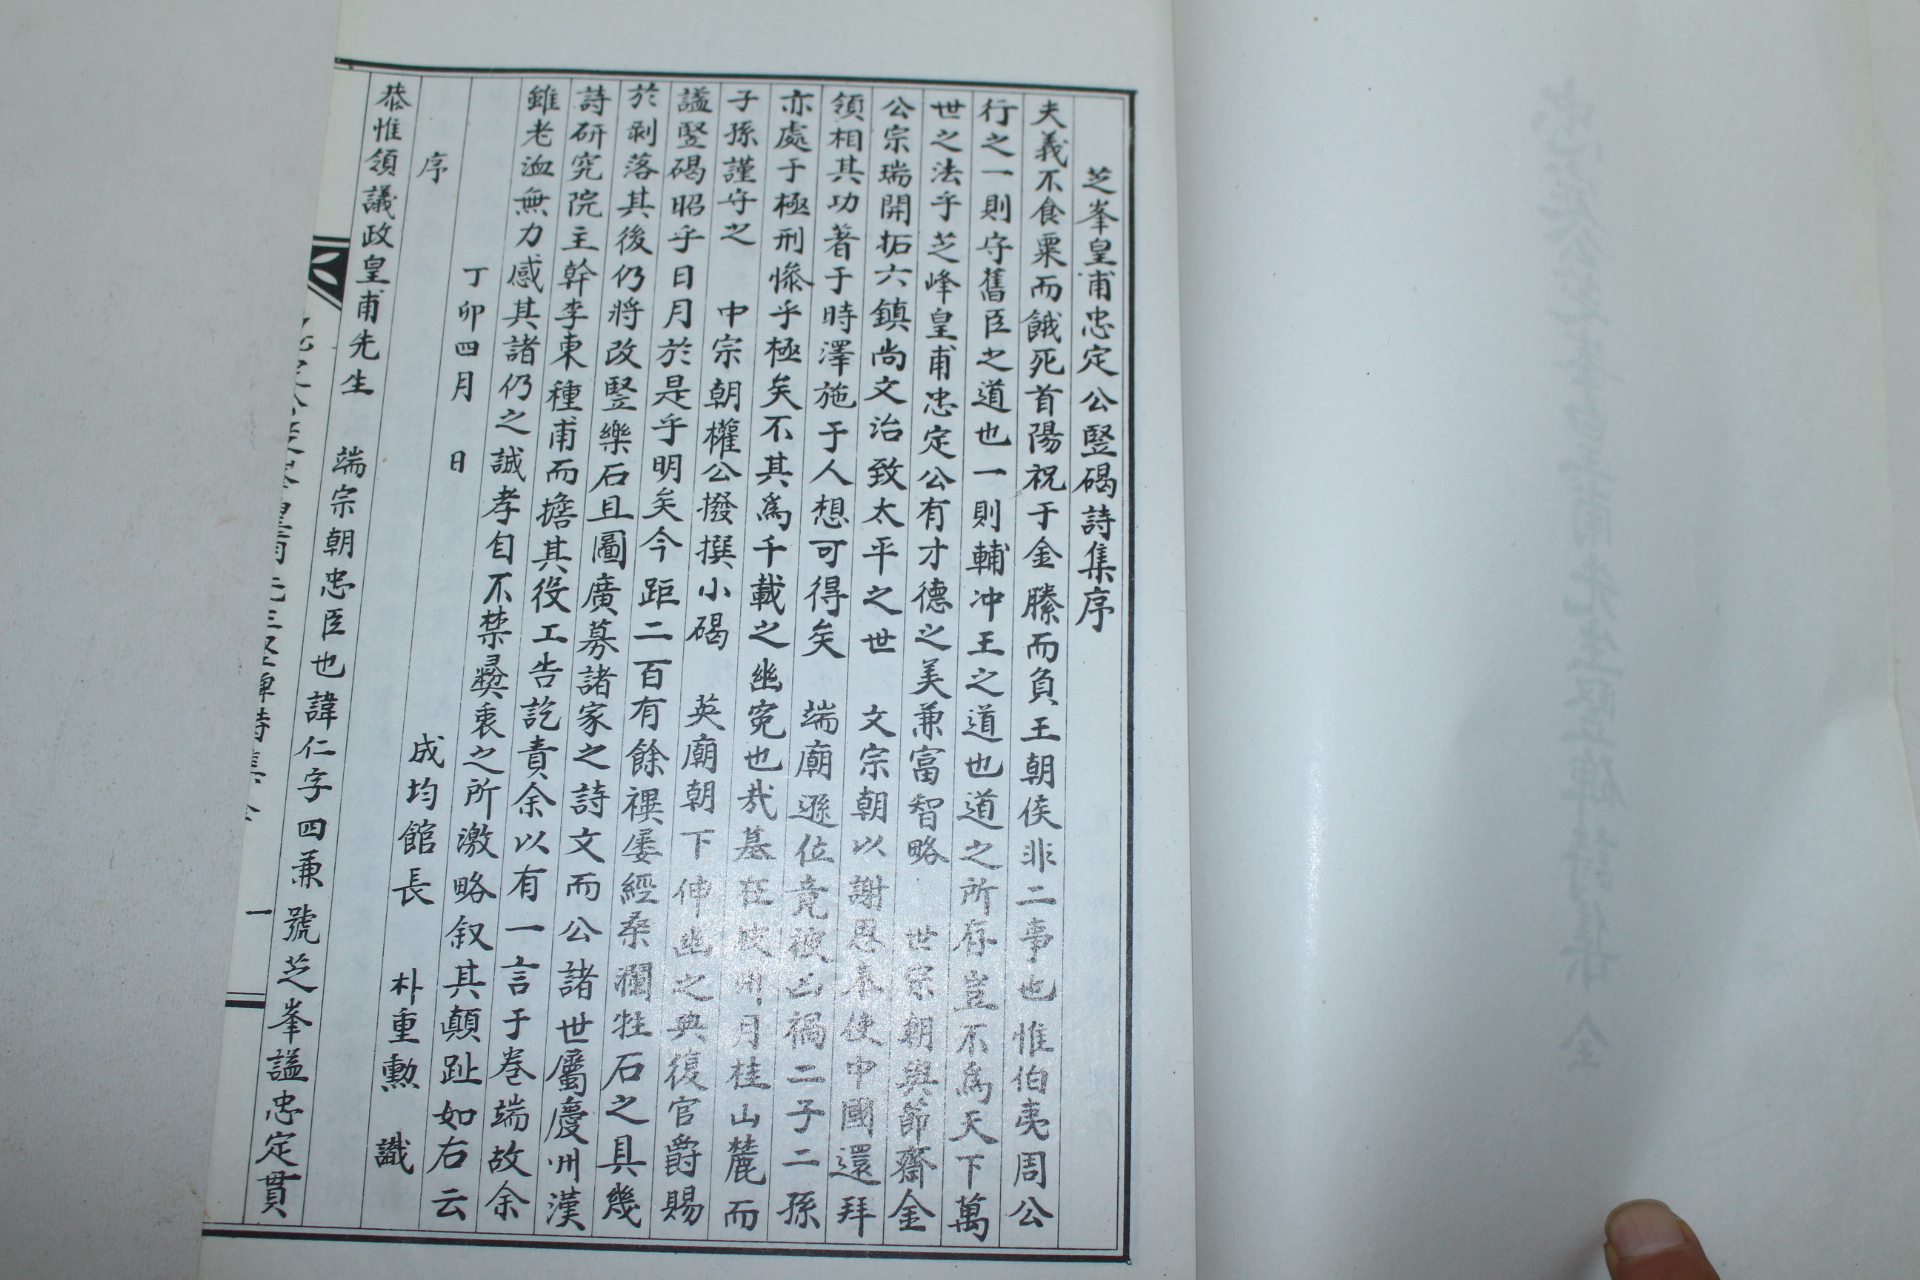 芝峯皇甫忠定公竪碣詩集序
夫義不食粟而餓死首陽祝于金縢而負王朝侯非二事也惟伯夷周公
行之一則守舊臣之道也一則輔冲王之道也道之所存豈不爲天下萬
世之法乎芝峰皇甫忠定公有才德之美兼富智略 世宗朝與節齋金
公宗瑞開拓六鎮尚文治致太平之世 文宗朝以謝恩奉使中國還拜
領相其功著于時澤施于人想可得矣 端廟遜位竟被凶禍二子二孫
亦處于極刑慘乎極矣不其爲千載之幽寃也哉墓在坡州月桂山麓而
子孫謹守之 中宗朝權公撥撰小碣 英廟朝下伸幽之典復官爵賜
諡竪碣昭乎日月於是乎明矣今距二百有餘禩屡經桑瀾牲石之具幾
於剥落其後仍將改竪樂石且圖廣募諸家之詩文而公諸世屬慶州漢
詩研究院主幹李東種甫而擔其役工告訖責余以有一言于卷端故余
雖老洫無力感其諸仍之誠孝自不禁彛衷之所激略叙其顛趾如右云
丁卯四月 日
成均館長 朴重勳 識
序
恭惟領議政皇甫先生 端宗朝忠臣也諱仁字四兼號芝峯諡忠定貫
一